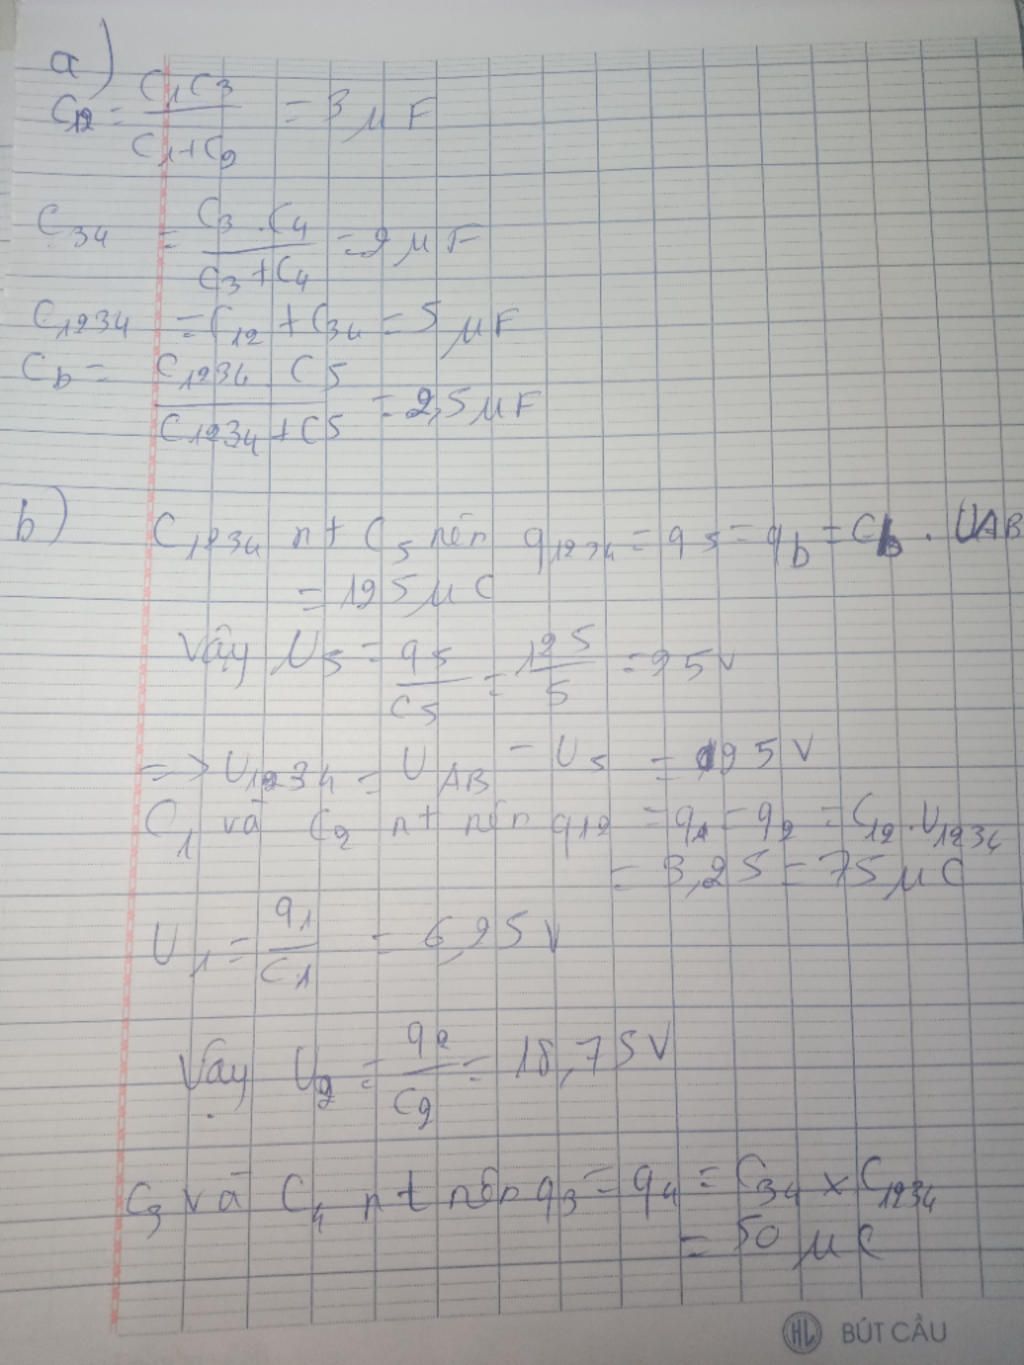 a)
C12 = C1C3 / C1+C2 = 3 μF
C34 = C3.C4 / C3+C4 = 2 μF
C1234 = C12 + C34 = 5 μF
Cb = C1234 C5 / C1234 + C5 = 2,5 μF
b) C1234 nt C5 nên q1234 = q5 = qb = Cb . UAB
= 125 μC
Vậy U5 = q5 / C5 = 125 / 5 = 25 V
=> U1234 = UAB - U5 = 25 V
C1 và C2 nt nên q12 = q1 = q2 = C12.U1234
= 3,25 = 75 μC
U1 = q1 / C1 = 6,25 V
Vậy U2 = q2 / C2 = 18,75 V
C3 và C4 nt nên q3 = q4 = C34 x C1234
= 50 μC
HL BÚT CẦU